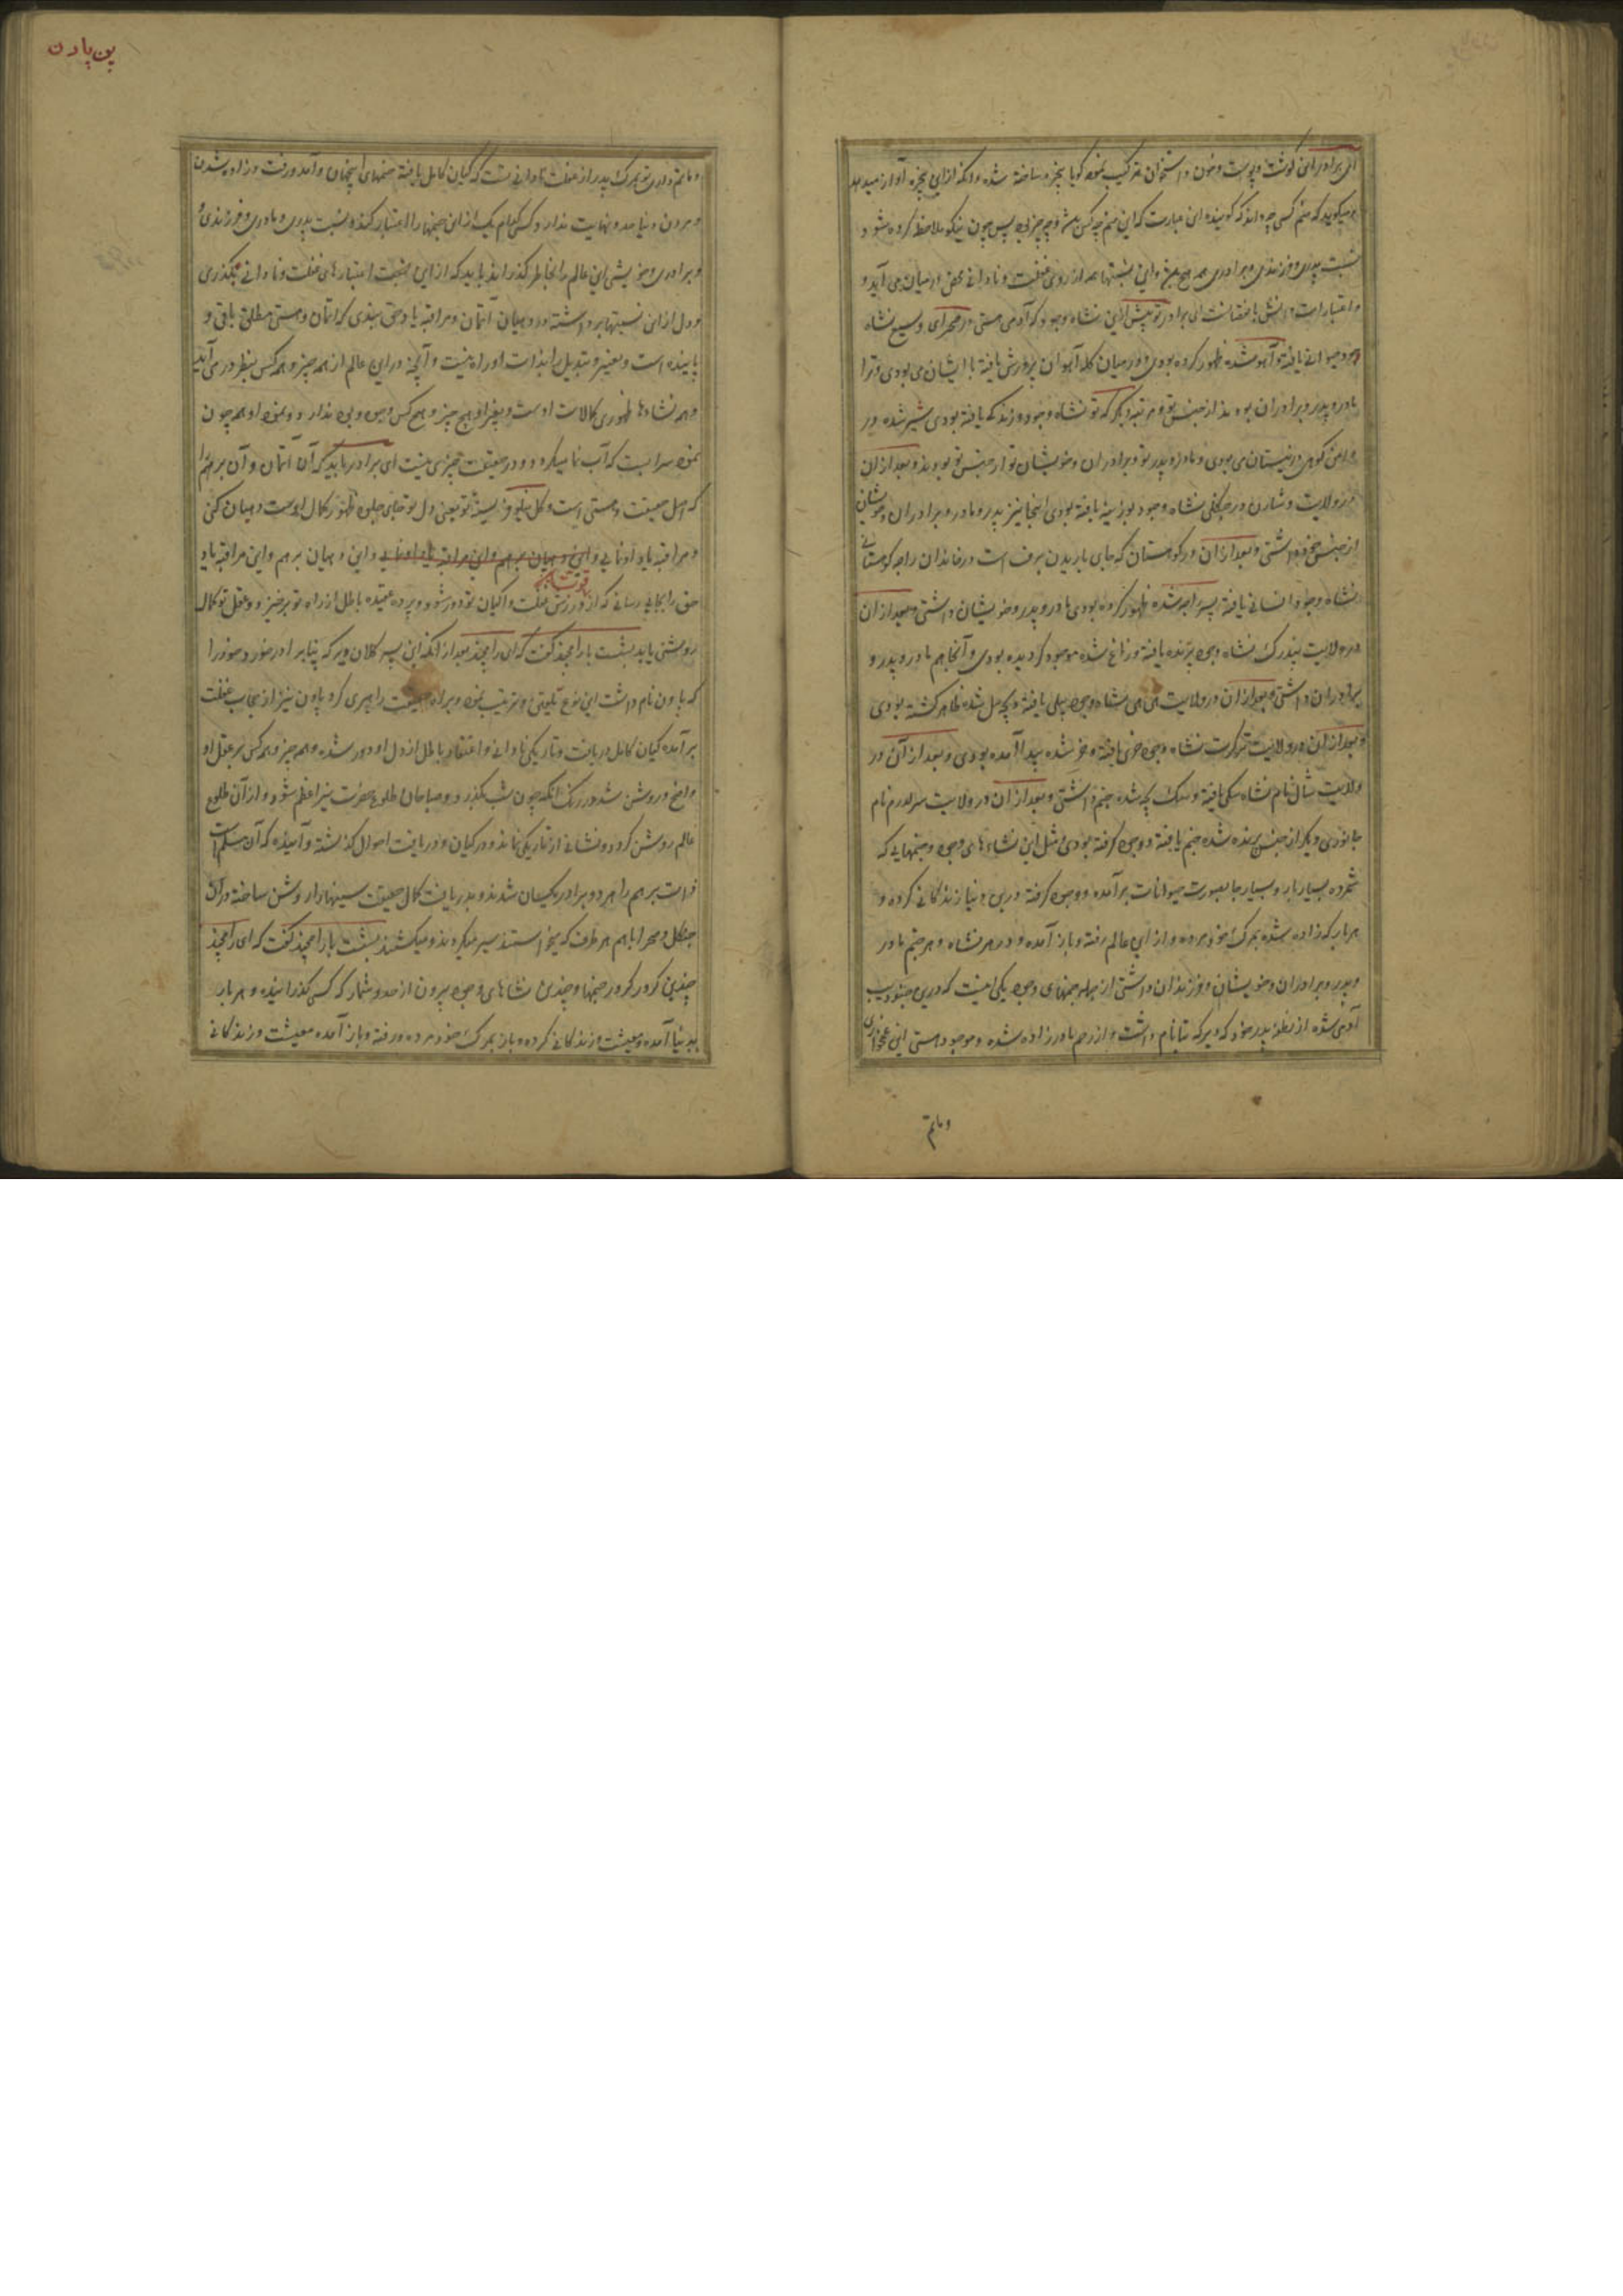 ای برادر این گوشت و پوست و خون و استخوان ترکیب نموده گویا پنجره ساخته شده و آنکه ازین پنجره آواز میدهد
و میگوید که منم کسی چه داند که گوینده این عبارت که این منم چه کس پس چون نیکو ملاحظه کرده شود
نسبت پدری و فرزندی و برادری همه هیچ و این نسبتها همه از روی غفلت و نادانی محض در میان می آید و
ای برادر تو پیش ازین نشاه وجود که آدمی هستی در صحرای وسیع نشاه
وجود حیوانی یافته و آهو شده ظهور کرده بودی و در میان گله آهوان پرورش یافته با ایشان می بودی و ترا
مادر و پدر و برادران بودند از جنس تو و مرتبه دیگر که تو نشاه وجود درندکی یافته بودی شیر شده در
دامن کوهی در نیستان می بودی و مادر و پدر تو و برادران و خویشان تو از جنس تو بودند و بعد از آن
در ولایت در جنگلی نشاه وجود بوزینه یافته بودی اینجا نیز پدر و مادر و برادران و خویشان
از جنس خود داشتی و بعد از آن در کوهستان که جای باریدن برف است در خاندان راجه کوهستانی
نشاه وجود انسانی یافته پسر راجه شده ظهور کرده بودی مادر و پدر و خویشان داشتی و بعد از آن
در ولایت نشاه وجود پرنده یافته و زاغ شده موجود گردیده بودی و آنجا هم مادر و پدر و
برادران داشتی و بعد از آن در ولایت نشاه وجود پیلی یافته و بچه پیل شده ظاهر گشته بودی
و بعد از آن در ولایت ترکرت نشاه وجود خری یافته و خر شده پیدا آمده بودی و بعد از آن در
ولایت شال نام نشاه سگی یافته و سگ بچه شده جنم داشتی و بعد از آن در ولایت نام
جانوری دیگر از جنس پرنده شده جنم یافته و وجود گرفته بودی مثل این نشاه های وجود و جنمهایی که
شمرده بسیار بار و بسیار جا بصورت حیوانات برآمده و وجود گرفته درین دنیا زندگانی کرده و
هر بار که زاده شده بمرگ خود مرده و از این عالم رفته و باز آمده و در هر نشاه و هر جنم مادر
و پدر و برادران و خویشان و فرزندان داشتی از جمله جنمهای وجود یکی اینست که درین
آدمی شده از نطفه پدر خود که دیرکه تپا نام داشت و از رحم مادر زاده شده و موجود هستی این غمخواری
و ماتم
پن پادن
و ماتم داری تو بمرگ پدر از غفلت نادانی تست که گیان کامل یافته جنمهای اینجهان و آمد و رفت و زاده شدن
و مردن دنیا حد و نهایت ندارد کسی کدام یک از این جنمها را اعتبار کند و نسبت پدری و مادری و فرزندی
و برادری و خویشی این عالم را بخاطر گذراند باید که ازین نسبت اعتبارهای غفلت و نادانی بگذری
و دل ازین نسبتها برداشته در دهیان آتمان و مراقبه یاد حق بندی که آتمان و هستی مطلق باقی و
پاینده است و تغییر و تبدیل را بذات او راه نیست و آنچه در این عالم از همه چیز و همه کس بنظر در می آید
و همه نشاه ها ظهوری کمالات اوست و بغیر او هیچ چیز و هیچ کس وجودی ندارد و نمود او همه چون
نمود سرابیست که آب نما میکردد و در حقیقت چیزی نیست ای برادر باید که آن آتمان و آن برهم را
که اصل حقیقت و هستی است و گل نیلوفر سینه تو یعنی دل تو جای جلوه ظهور کمال اوست دهیان کنی
و مراقبه یاد او نمایی و این دهیان برهم و این مراقبه یاد او نمایی و این دهیان برهم و این مراقبه یاد
حق را بجایی رسانی که از ورزش قوت غفلت و اگیان تو دور شود و پرده عقیده باطل از راه تو برخیزد و عقل تو کمال
روشنی یابد بشست با رامچند گفت که ای رامچند بعد از آنکه این پسر کلان دیرکه تپا برادر خورد خود را
که پاون نام داشت این نوع تلقین و ترغیب نمود و براه حقیقت راهبری کرد پاون نیز از حجاب غفلت
برآمده گیان کامل دریافت و تاریکی نادانی و اعتقاد باطل از دل او دور شده و همه چیز و همه کس بر عقل او
واضح و روشن شد در رنگ آنکه چون شب بگذرد و صباحان طلوع حضرت نیر اعظم شود و از آن طلوع
عالم روشن گردد و نشانی از تاریکی نماند و در گیان و دریافت احوال گذشته و آینده که آن مسلم است
ذات برهم را هر دو برادر یکسان شدند و بدریافت کمال حقیقت سینها را روشن ساخته در آن
جنگل و صحرا باهم هر طرف که میخواستند سیر میکردند و میگشتند بشست با رامچند گفت که ای رامچند
چندین کرور کرور جنمها و چندین نشاهای وجود بیرون از حد و شمار که کسی گذرانیده و هر بار
بدنیا آمده و معیشت و زندگانی کرده و باز بمرگ خود مرده و رفته و باز آمده معیشت و زندگانی